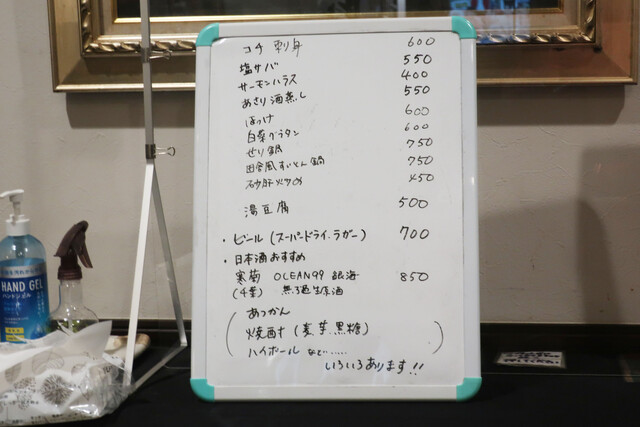 コチ 刺身 600
塩サバ 550
サーモンハラス 400
あさり酒蒸し 550
ほっけ 600
白菜グラタン 600
せり鍋 750
田舎風すいとん鍋 750
砂肝炒め 450
湯豆腐 500
・ビール(スーパードライ.ラガー) 700
・日本酒おすすめ
寒菊 OCEAN99 銀海 850
(千葉) 無ろ過生原酒
あつかん
焼酎(麦.芋.黒糖)
ハイボール など……
いろいろあります!!
HAND GEL
ハンドジェル